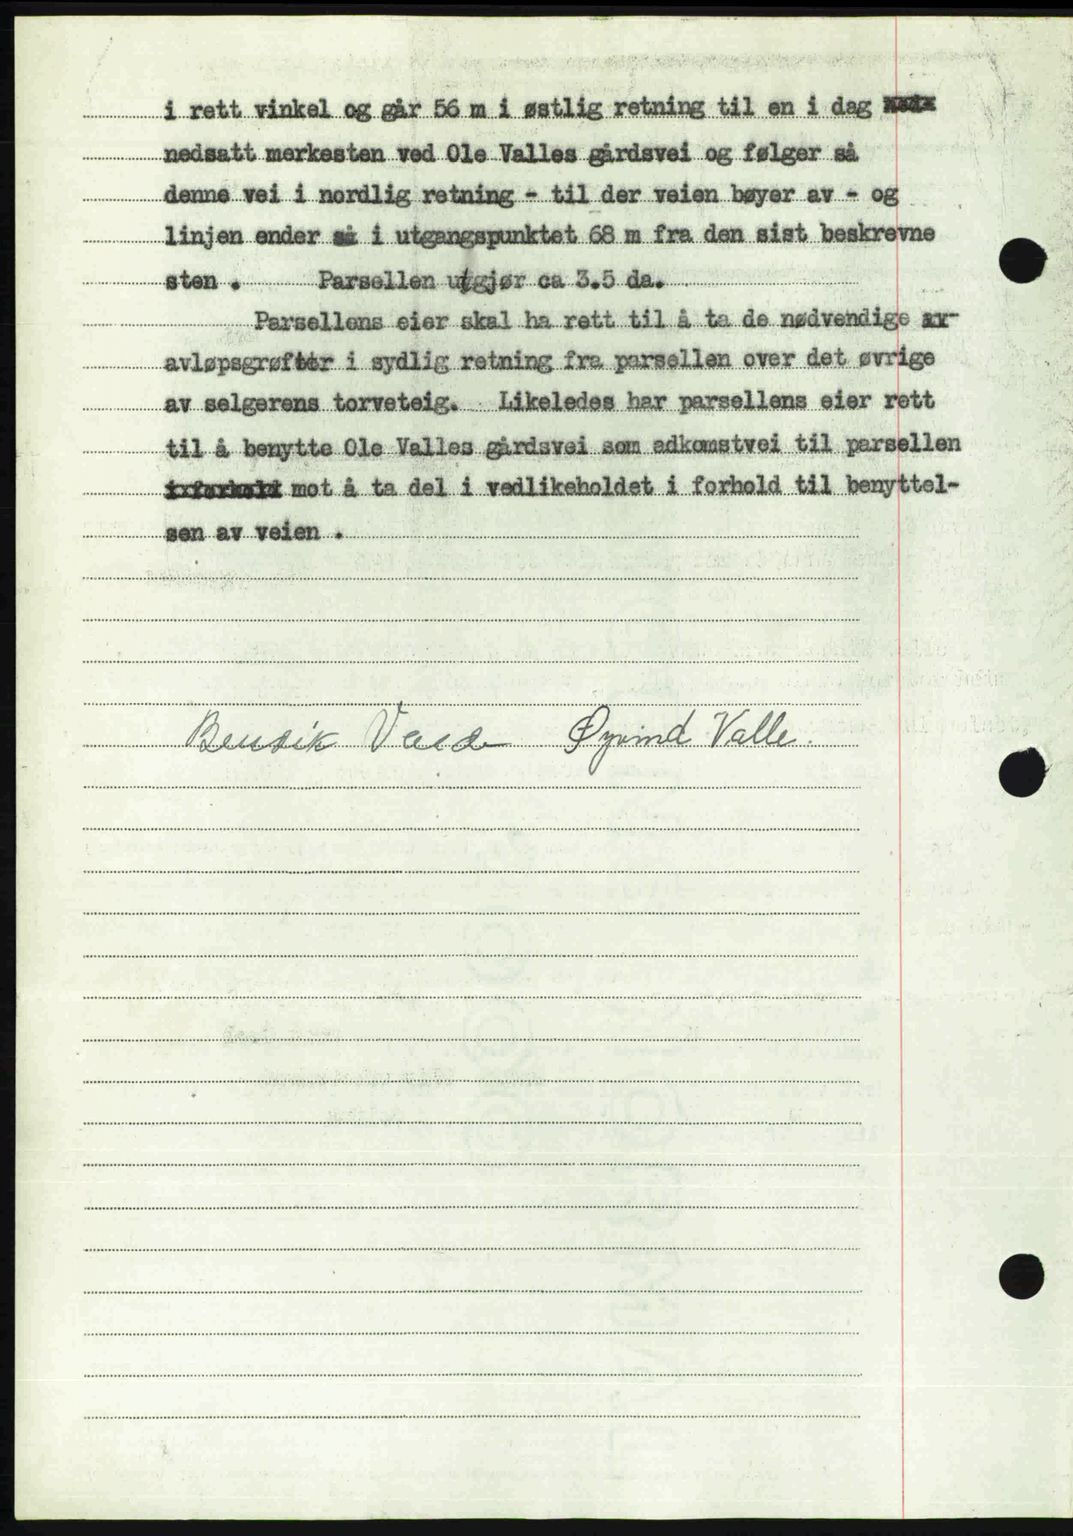 i rett vinkel og går 56 m i østlig retning til en i dag
nedsatt merkesten ved Ole Valles gårdsvei og følger så
denne vei i nordlig retning - til der veien bøyer av - og
linjen ender så i utgangspunktet 68 m fra den sist beskrevne
sten . Parsellen utgjør ca 3.5 da.
Parsellens eier skal ha rett til å ta de nødvendige
avløpsgrøfter i sydlig retning fra parsellen over det øvrige
av selgerens torveteig. Likeledes har parsellens eier rett
til å benytte Ole Valles gårdsvei som adkomstvei til parsellen
i forhold mot å ta del i vedlikeholdet i forhold til benyttel-
sen av veien .
Bendik Øyvind Valle.